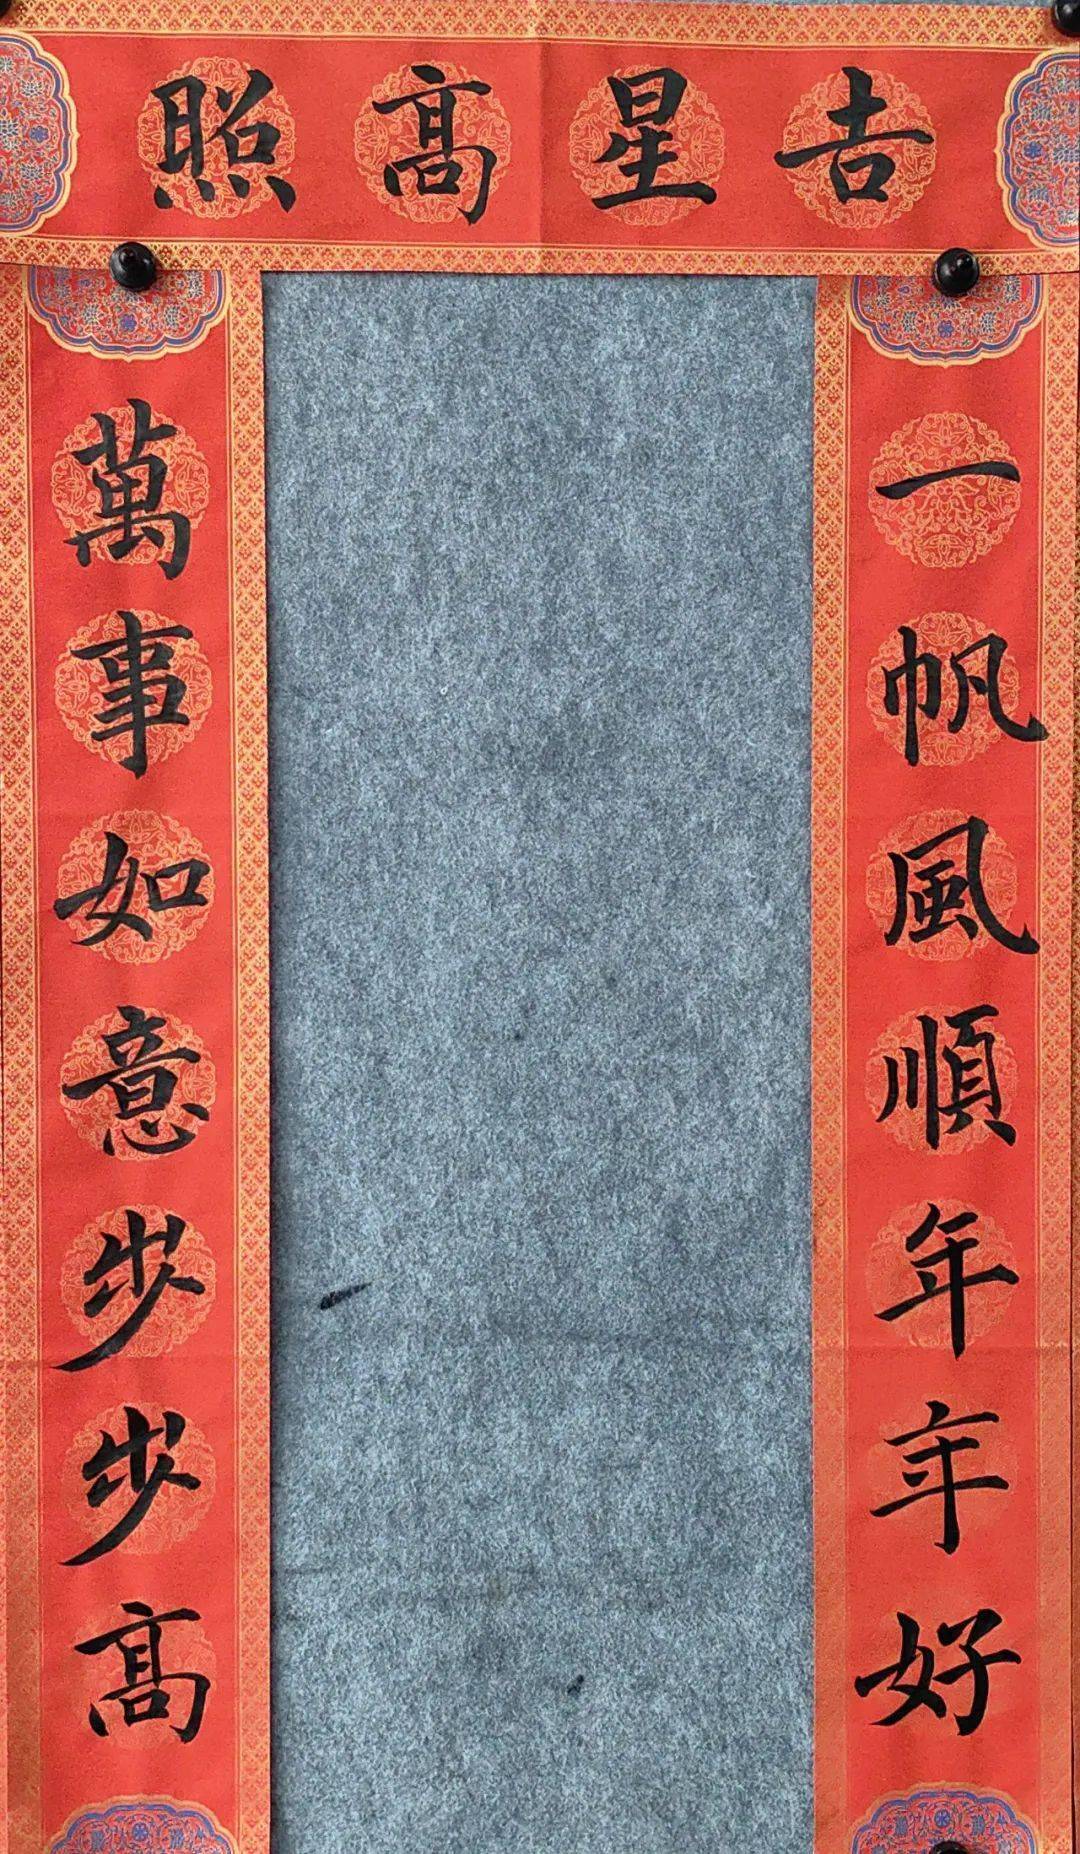 吉星髙照
一帆風順年年好
萬事如意步步髙